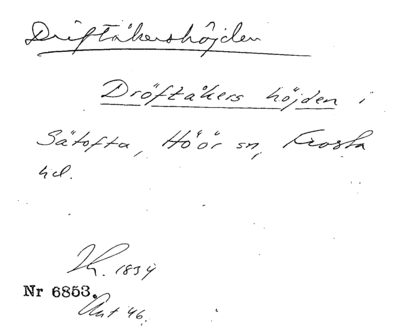 Driftåkershöjden
Dröftåkers höjden i
Sätofta, Höör sn, Frosta
hd.
1834
Nr 6853.
Ant 46.